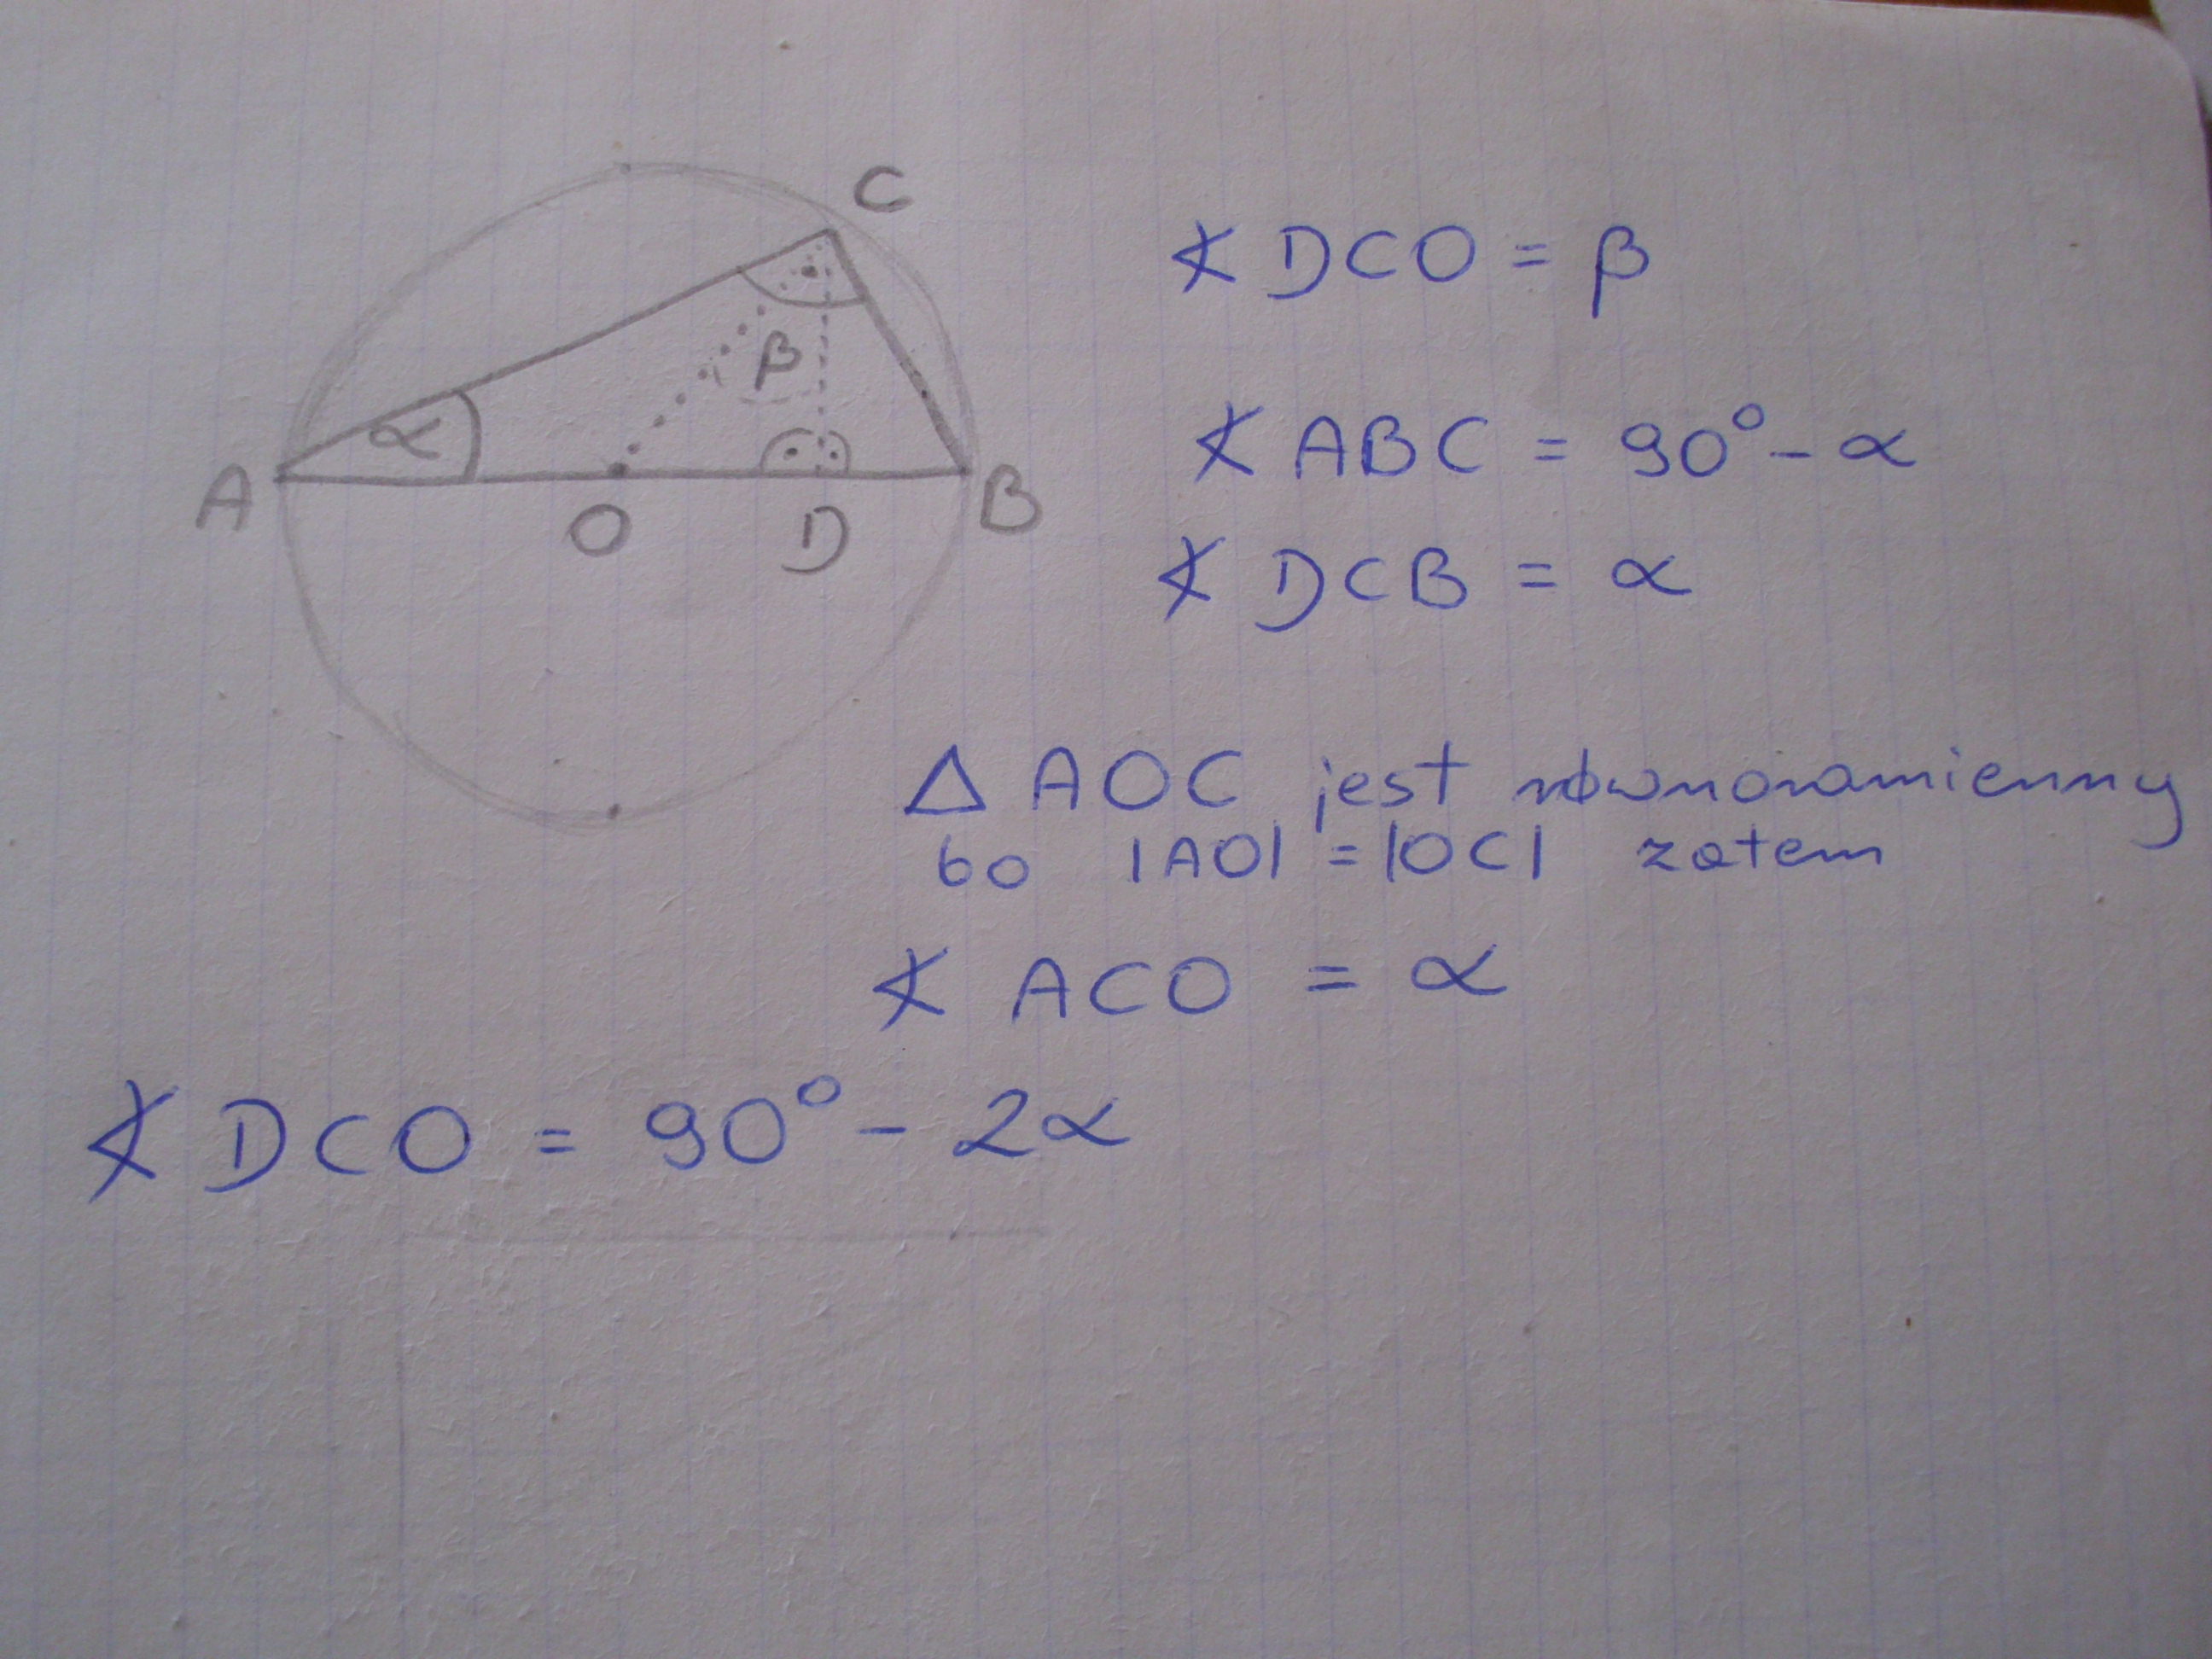 C
β
α
A
O
D
B
∢ DCO = β
∢ ABC = 90° - α
∢ DCB = α
△ AOC jest równoramienny
bo |AO| = |OC| zatem
∢ ACO = α
∢ DCO = 90° - 2α